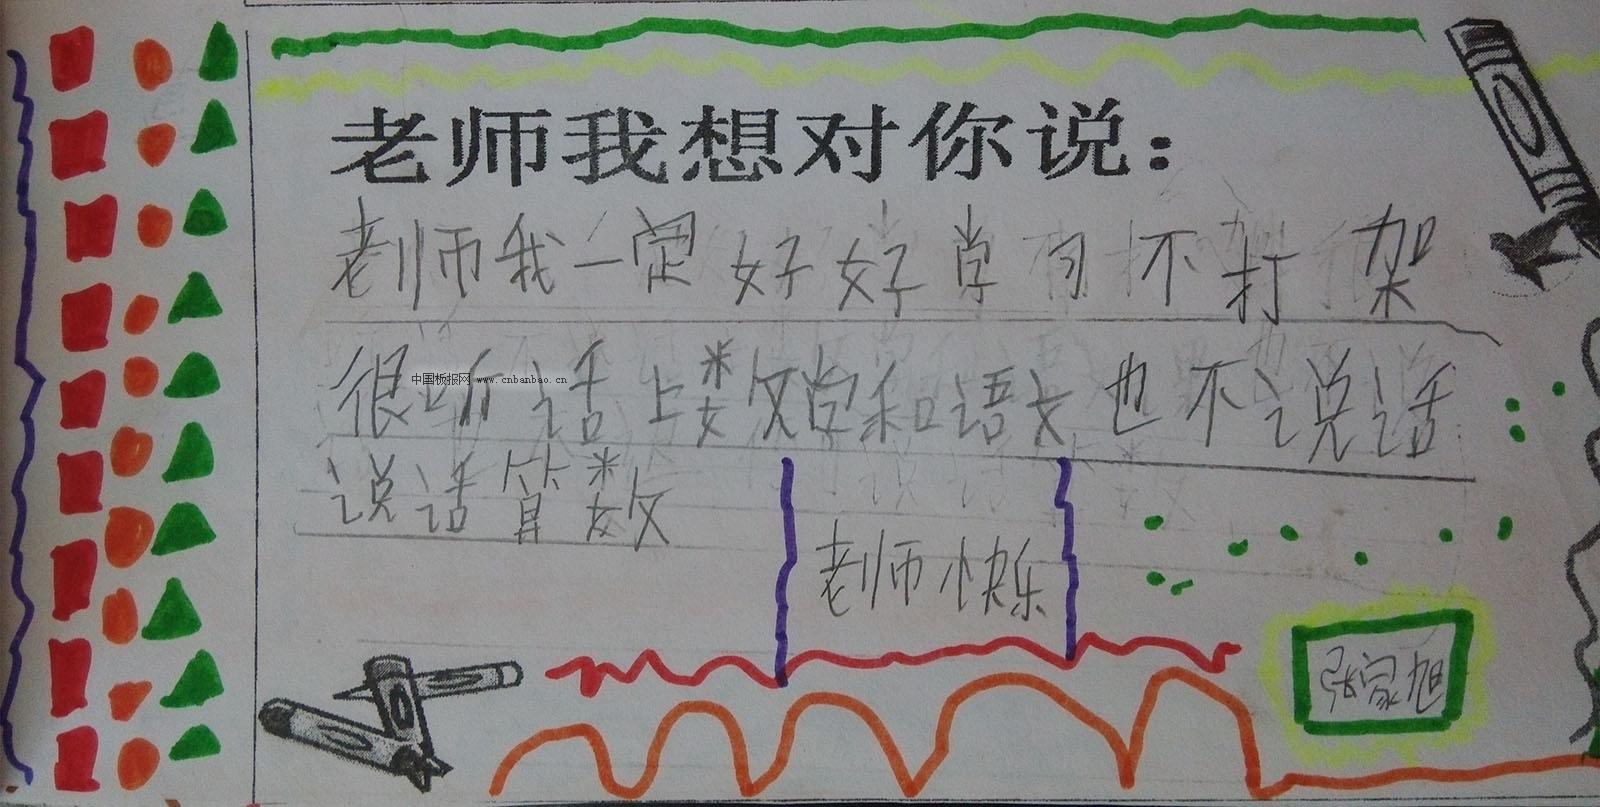 老师我想对你说：
老师我一定好好学习不打架
很听话上数学和语文也不说话
中国板报网 www.cnbanbao.cn
说话算数
老师快乐
张家旭